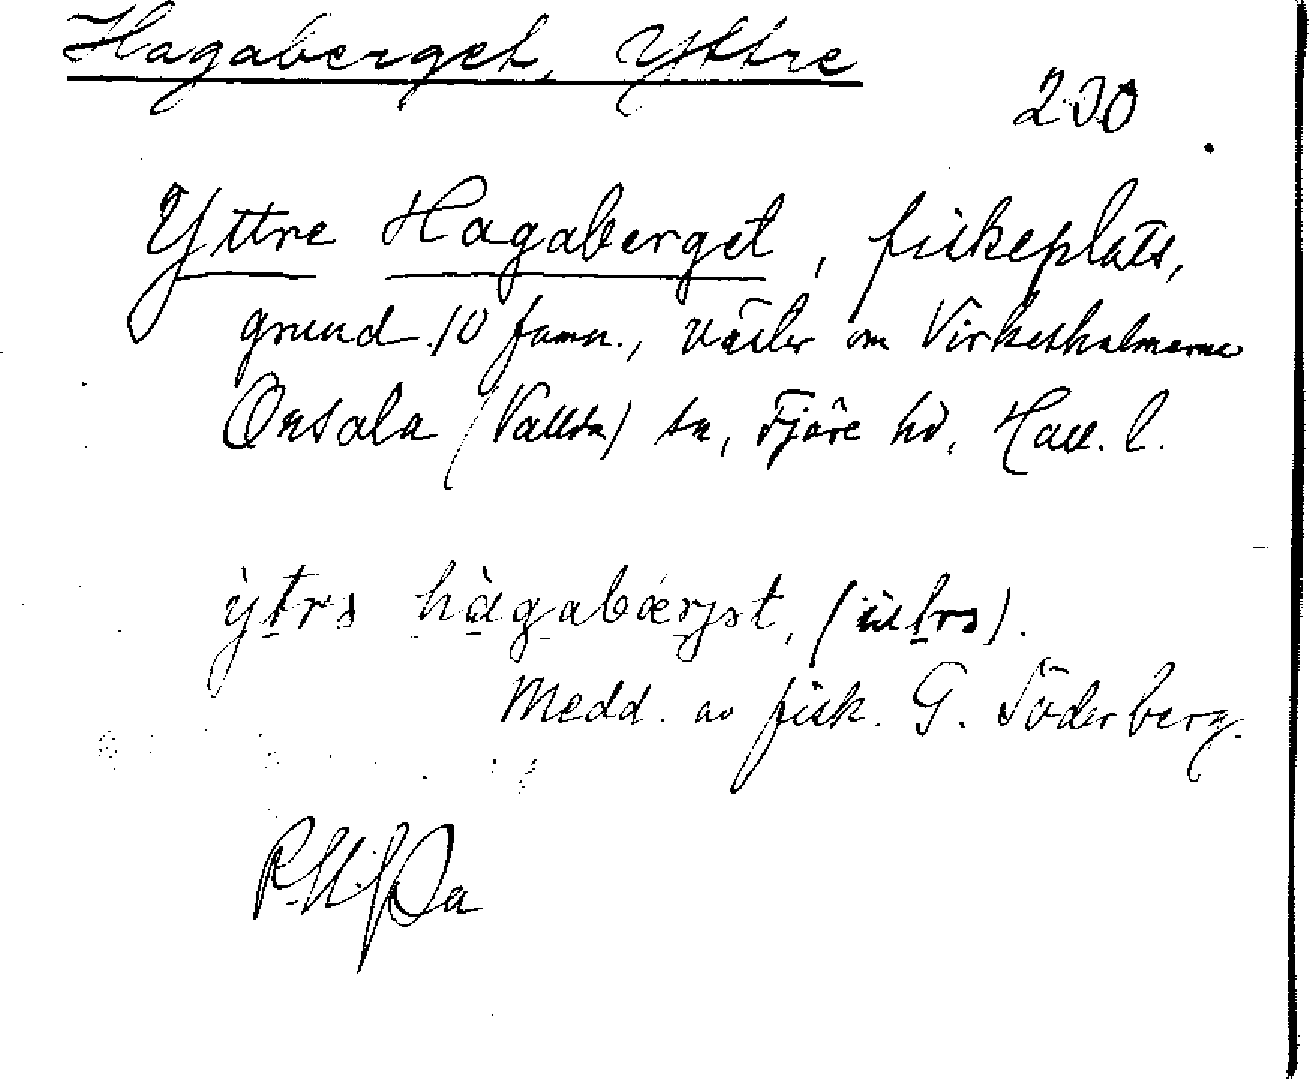 Hagaberget, Yttre
230
Yttre Hagaberget, fiskeplats,
grund 10 famn., väster om Virkesholmarne
Onsala (Vallda) sn, Fjäre hd, Hall. l.
ỳtrə hàgabærjət, (
Medd. av fisk. G. Söderberg.